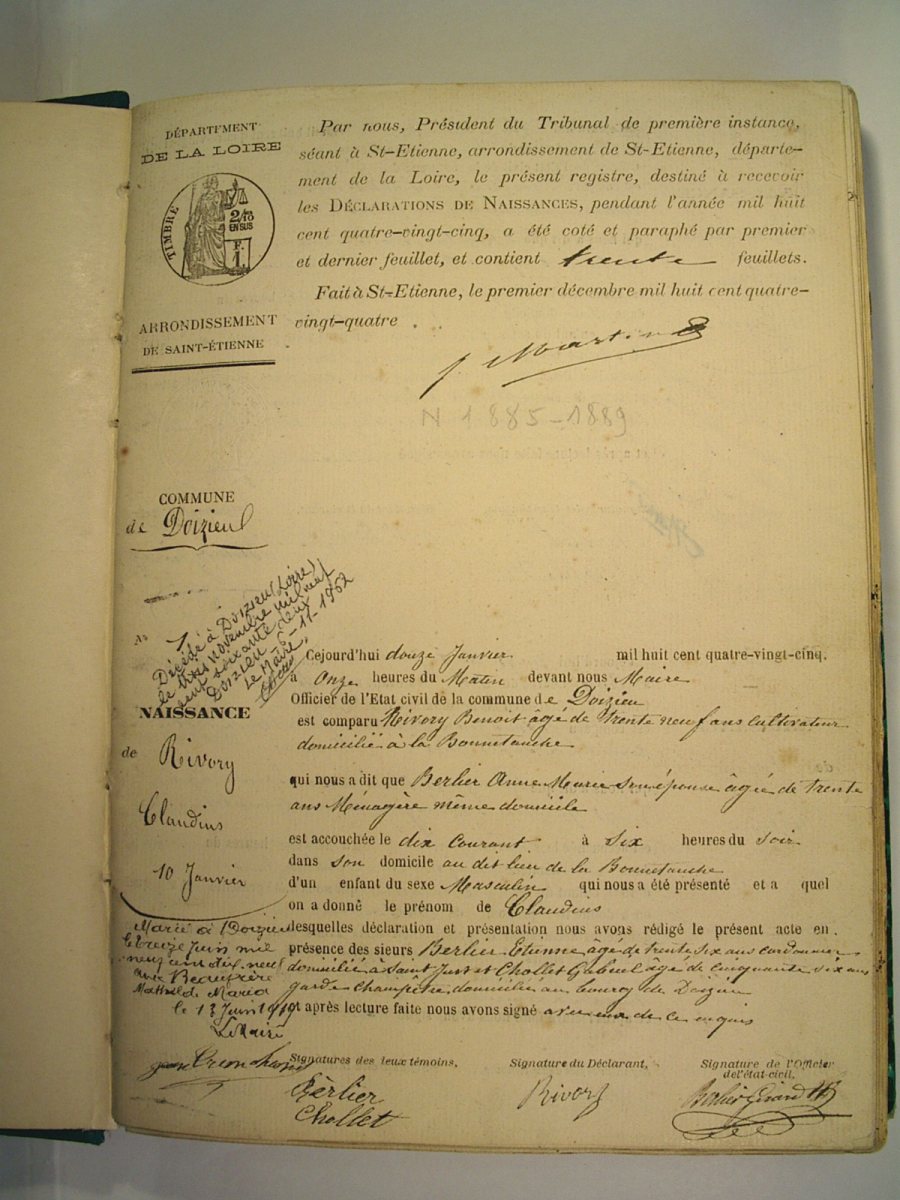 DÉPARTEMENT
DE LA LOIRE
TIMBRE
2/10
EN SUS
F.
1
ARRONDISSEMENT
DE SAINT-ÉTIENNE
Par nous, Président du Tribunal de première instance,
séant à St-Etienne, arrondissement de St-Etienne, départe-
ment de la Loire, le présent registre, destiné à recevoir
les DÉCLARATIONS DE NAISSANCES, pendant l'année mil huit
cent quatre-vingt-cinq, a été coté et paraphé par premier
et dernier feuillet, et contient trente feuillets.
Fait à St-Etienne, le premier décembre mil huit cent quatre-
vingt-quatre
J. Martin
N 1885-1889
COMMUNE
de Doizieu
Décédé à Doizieu (Loire)
le trois novembre mil neuf
cent soixante deux
Doizieu -11-1962
Le Maire,
NAISSANCE
de Rivory
Claudius
10 Janvier
Marié à Doizieu
le treize Juin mil
neuf cent dix neuf
avec Beaufrère
Mathilde Maria
le 13 Juin 1919
Le Maire
Cejourd'hui douze Janvier mil huit cent quatre-vingt-cinq,
à Onze heures du Matin devant nous Maire
Officier de l'Etat civil de la commune de Doizieu
est comparu Rivory Benoit âgé de trente neuf ans cultivateur
domicilié à la Bonnetanche
qui nous a dit que Berlier Anne Marie son épouse âgée de trente
ans Ménagère même domicile
est accouchée le dix courant à six heures du soir
dans son domicile au dit lieu de la Bonnetanche
d'un enfant du sexe Masculin qui nous a été présenté et a quel
on a donné le prénom de Claudius
lesquelles déclaration et présentation nous avons rédigé le présent acte en
présence des sieurs Berlier Etienne âgé de trente six ans cordonnier
domicilié à Saint Just et Chollet Gabriel âgé de cinquante six ans
garde champêtre domicilié au bourg de Doizieu
et après lecture faite nous avons signé avec eux de ce enquis
Signatures des deux témoins,
Berlier
Chollet
Signature du Déclarant,
Rivory
Signature de l'Officier
de l'état-civil,